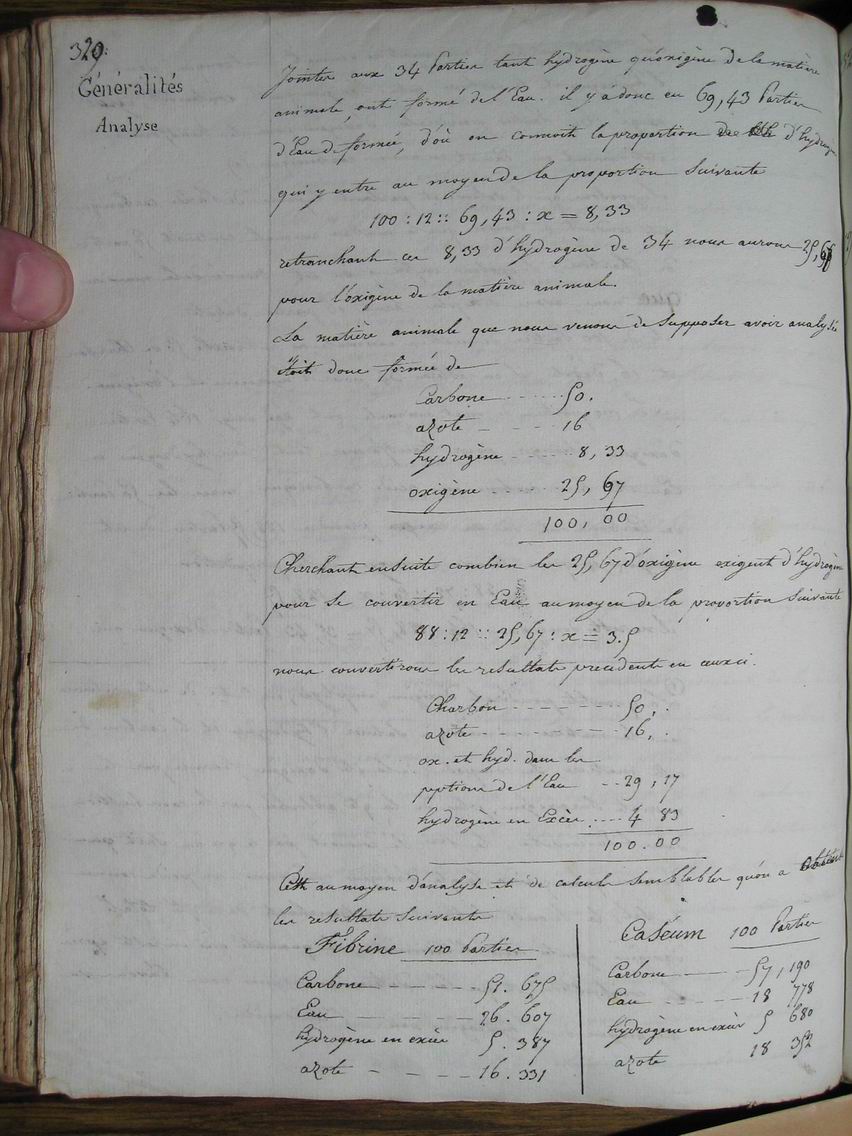 329.
Généralités
Analyse
Jointes aux 34 Parties tant hydrogène qu'oxigène de la matière
animale, ont formé de l'Eau. il y a donc eu 69,43 Parties
d'Eau de formée, d'où on connoit la proportion de d'hydrogène
qui y entre au moyen de la proportion suivante
100 : 12 :: 69,43 : x = 8,33
retranchant ces 8,33 d'hydrogène de 34 nous aurons 25,67
pour l'oxigène de la matière animale.
La matière animale que nous venons de supposer avoir analysée
étoit donc formée de
Carbone ...... 50.
azote - - - 16
hydrogène ..... 8,33
oxigène ..... 25,67
100,00
Cherchant ensuite combien les 25,67 d'oxigène exigent d'hydrogène
pour se convertir en Eau au moyen de la proportion suivante
88 : 12 :: 25,67 : x = 3.5
nous convertirons les resultats precedents en ceux ci.
Charbon - - - - - - 50, .
azote - - - - - - 16, .
ox. et hyd. dans les
pptions de l'Eau - - 29,17
hydrogène en Excès .... 4 83
100.00
C'est au moyen d'analyse et de calculs semblables qu'on a obtenu
les resultats suivants
Fibrine 100 Parties
Carbone - - - - 51. 675
Eau - - - - - 26. 607
hydrogène en excès 5. 387
azote - - - - 16. 331
Caséum 100 Parties
Carbone - - - 57,190
Eau - - - - 18 778
hydrogène en excès 5 680
azote 18 352